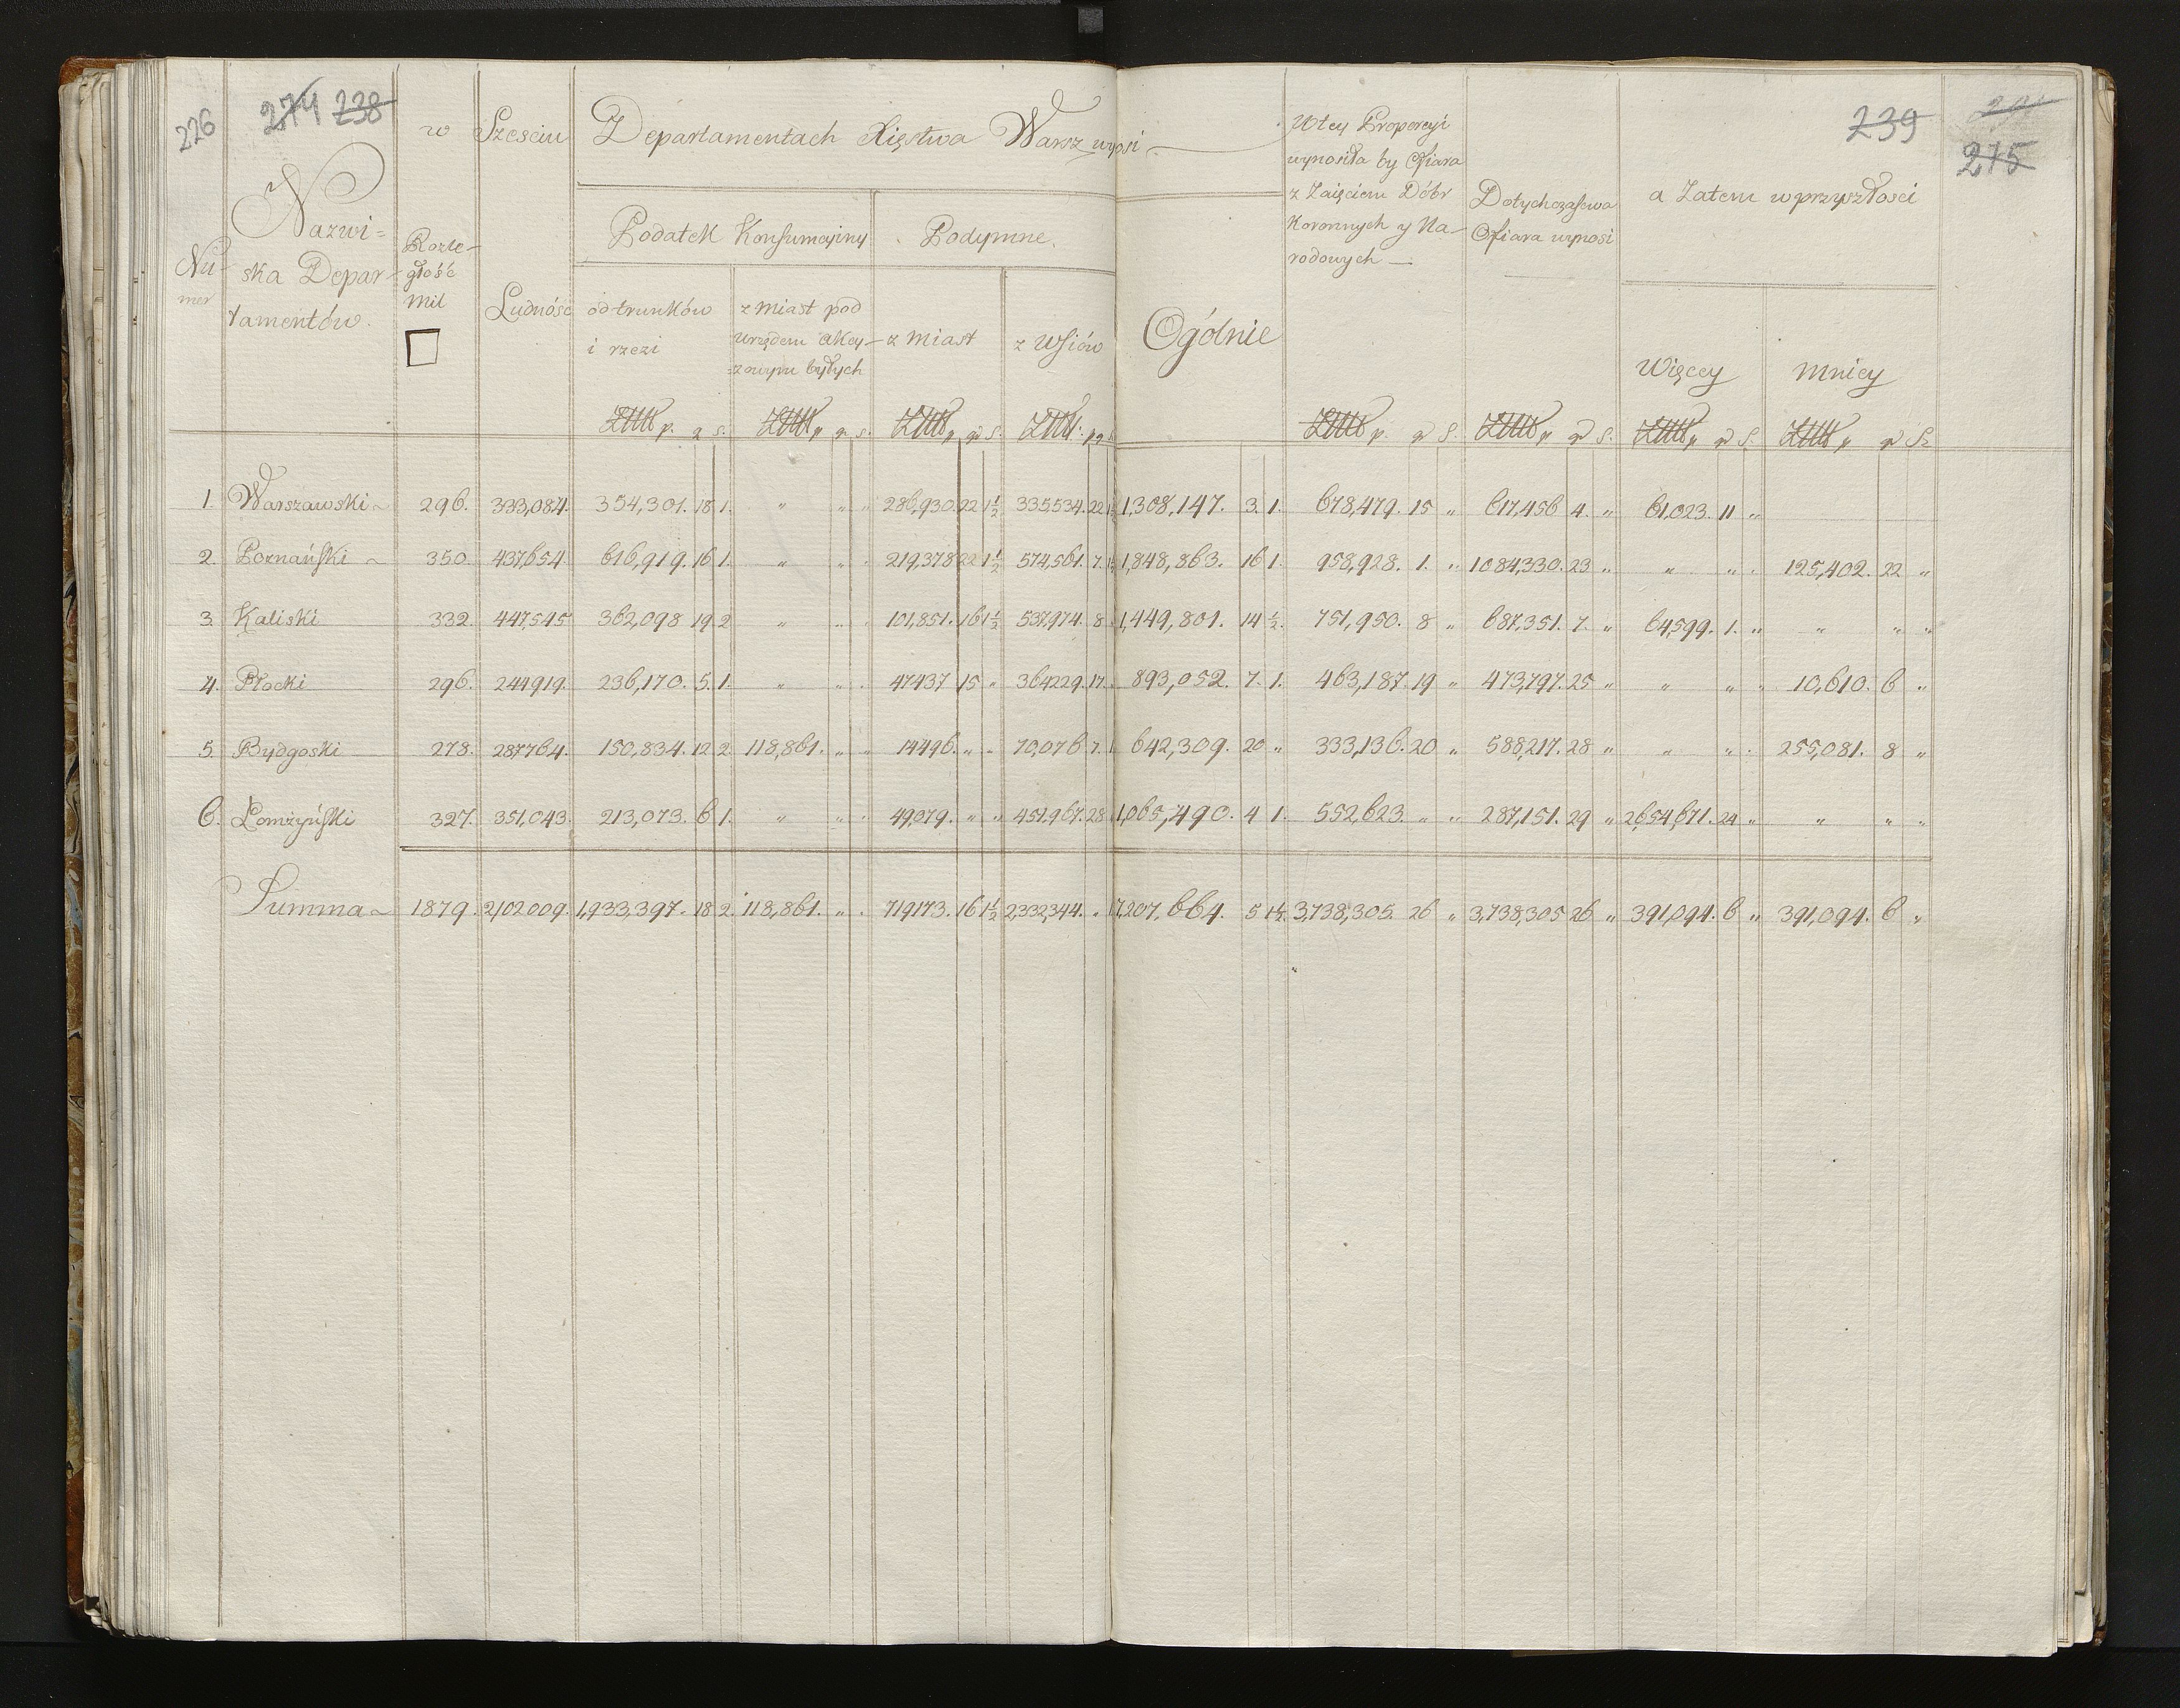 226
274 238
239
275
w Szesciu Departamentach Xięstwa Warsz wynosi
Nu-
mer
Nazwi=
ska Depar-
tamentów.
Rozle-
głość
Mil
Ludność
Podatek Konsumcyiny
od trunków
i rzezi
z Miast pod
Urzędem Akcy-
=zowym byłych
Podymne.
z Miast
z Wsiów
Ogólnie
W tey Proporcyi
wynosiła by Ofiara
z Zaięciem Dóbr
Koronnych y Na-
rodowych —
Dotychczasowa
Ofiara wynosi
a Zatem w przyszłosci
Więcey
Mniey
1. Warszawski 296. 333,084. 354,301. 18 1. " " " 286,930. 22 1½ 335,534. 22 1½ 1,308,147. 3. 1. 678,479. 15 " 617,456 4. " 61,023. 11 "
2. Poznański 350. 437,654. 616,919. 16 1. " " " 219,378 22 1½ 574,561. 7. 1½ 1,848,863. 16 1. 958,928. 1. " 1084,330. 23 " " " " 125,402. 22 "
3. Kaliski 332. 447,545 362,098 19 2 " " " 101,851. 16 1½ 537,974. 8 1,449,801. 14 ½. 751,950. 8 " 687,351. 7. " 64,599. 1. " " " "
4. Płocki 296. 244919. 236,170. 5. 1. " " " 47437 15 " 364229. 17. 893,052. 7. 1. 463,187. 19 " 473,797. 25 " " " " 10,610. 6 "
5. Bydgoski 278. 287764. 150,834. 12 2 118,861. " " 14496. " " 70,076 7. 1 642,309. 20 " 333,136. 20 " 588,217. 28 " " " " 255,081. 8 "
6. Łomżyński 327. 351,043. 213,073. 6 1. " " " 49,079. " " 451,967. 28 1,065,490. 4 1. 552,623. " " 287,151. 29 " 26,54,671. 24 " " " "
Summa 1879. 2,102009. 1,933,397. 18 2. 118,861. " " 719173. 16 1½ 2,332,344. " 7,207,664. 5 1½ 3,738,305. 26 " 3,738,305 26 " 391,094. 6 " 391,094. 6 "